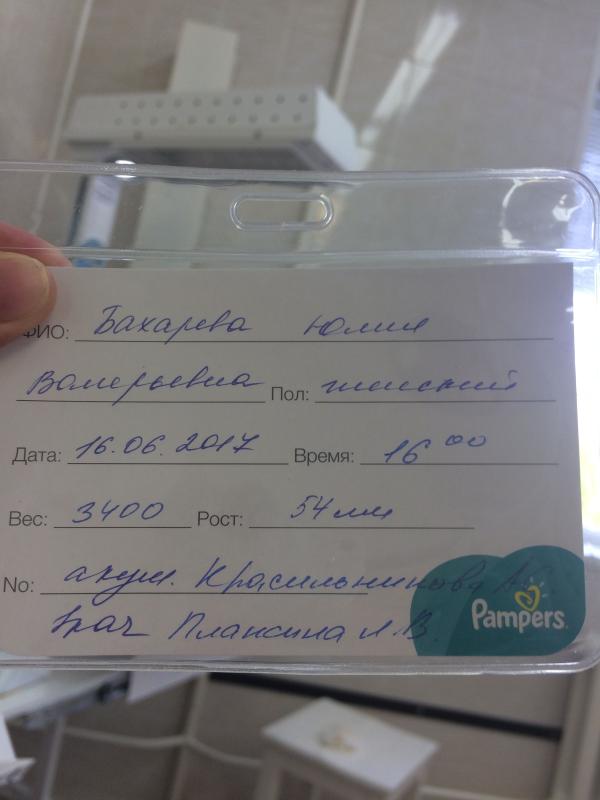 ФИО: Бахарева Юлия
Валерьевна Пол: женский
Дата: 16.06.2017 Время: 16 00
Вес: 3400 Рост: 54 мм
No: акуш. Красильникова А.
Врач Плаксина Л.В.
Pampers